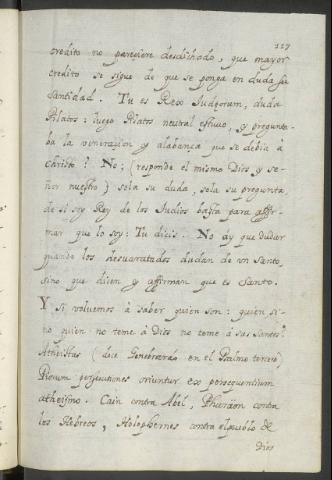 127
credito no pareciere desdichado, que mayor
credito se sigue de que se ponga en duda su
santidad. Tu es Rex Judeorum, duda
Pilatos: luego Pilatos neutral estuvo, y pregunta-
ba la veneracion y alabança que se debia à
Christo? No; (responde el mismo Dios y se-
ñor nuestro) sola su duda, sola su pregunta
de si soy Rey de los Judios basta para affir-
mar que lo soy: Tu dicis. No ay que dudar
quando los desbaratados dudan de un santo
sino que dicen y affirman que es santo.
Y si volvemos à saber quien son: quien si-
no quien no teme à Dios no teme à sus santos?
Atheistas (dice Genebrardo en el Psalmo tercio)
Piorum persecutiones oriuntur ex persequentium
atheismo. Cain contra Abel, Pharaon contra
los Hebreos, Holophernes contra el pueblo de
Dios